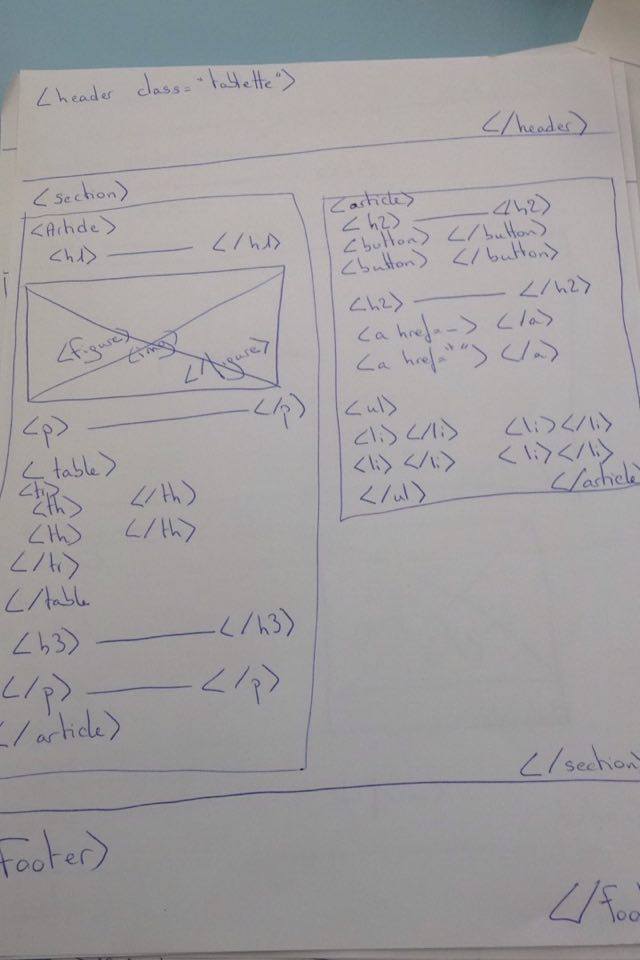 <header class="tablette">
</header>
<section>
<Article>
<h1> </h1>
<figure> <img>
</figure>
<p> </p>
<table>
<tr>
<th> </th>
<th> </th>
</tr>
</table
<h3> </h3>
</p> </p>
</article>
<article>
<h2> </h2>
<button> </button>
<button> </button>
<h2> </h2>
<a href=-> </a>
<a href=""> </a>
<ul>
<li> </li> <li> </li>
<li> </li> <li> </li>
</ul> </article
</section>
Footer>
</foo